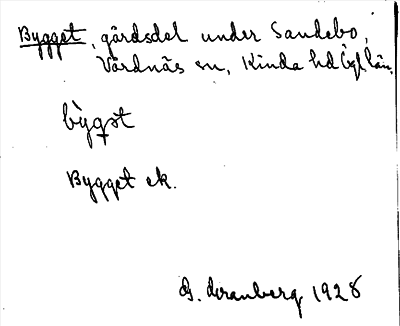 Bygget, gårdsdel under Sandebo,
Vårdnäs sn, Kinda hd Ögl län.
bỳgət
Bygget ek.
G. Granberg 1928